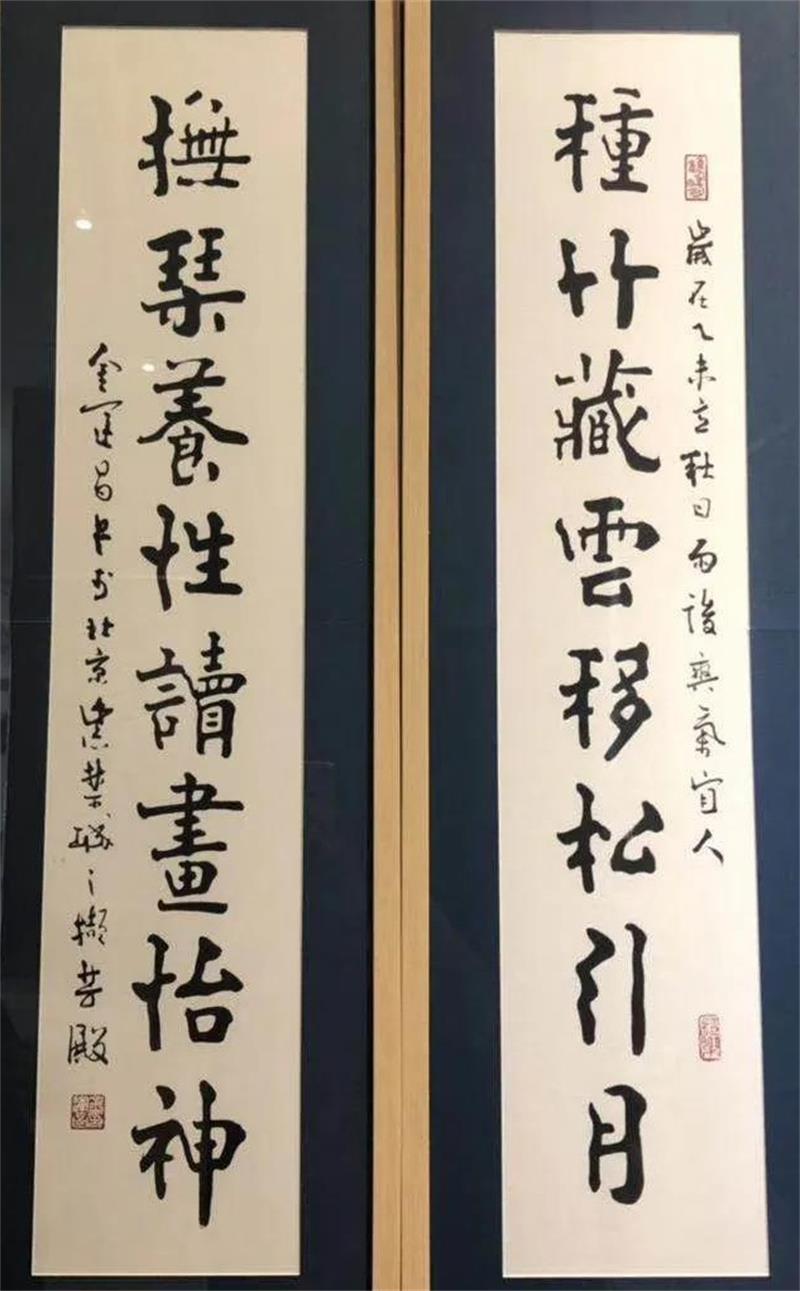 種竹藏雲移松引月
歲在乙未立秋日雨後爽氣宜人
撫琹養性讀畫怡神
金運昌書於北京紫禁城之擷芳殿